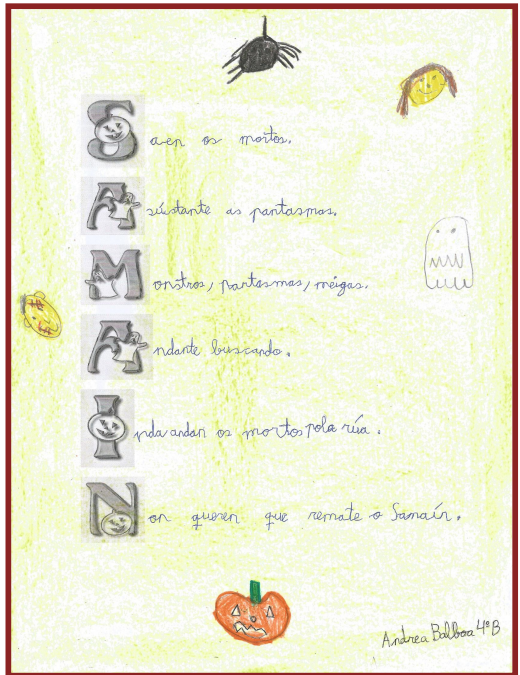 Saen os mortos.
Asústante as pantasmas.
Monstros, pantasmas, meigas.
Andante buscando.
Inda andan os mortos pola rúa.
Non queren que remate o Samaín.
Andrea Balboa 4º B